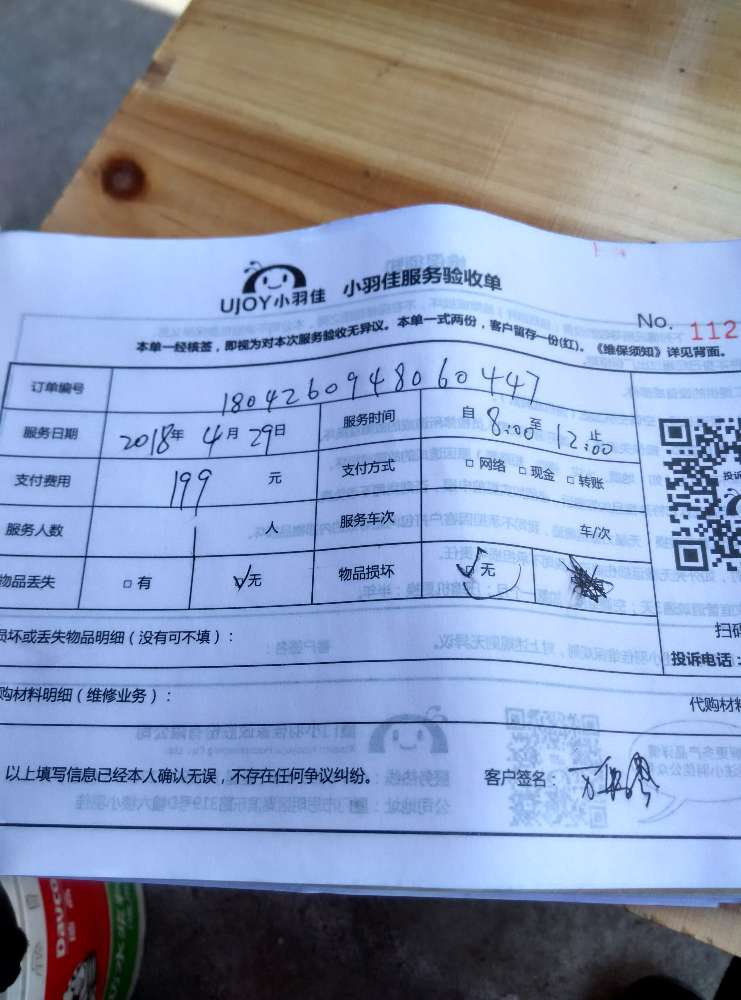 UJOY小羽佳 小羽佳服务验收单
No. 112
本单一经核签，即视为对本次服务验收无异议。本单一式两份，客户留存一份(红)。《维保须知》详见背面。
订单编号 1804260948060447
服务日期 2018年 4月 29日 服务时间 自 8:00 至 12:00 止
支付费用 199 元 支付方式 □ 网络 □ 现金 □ 转账
服务人数 1 人 服务车次 车/次
物品丢失 □ 有 ☑无 物品损坏 ☑ 无
损坏或丢失物品明细（没有可不填）：
扫码
投诉电话：
购材料明细（维修业务）：
代购材料
以上填写信息已经本人确认无误，不存在任何争议纠纷。 客户签名：